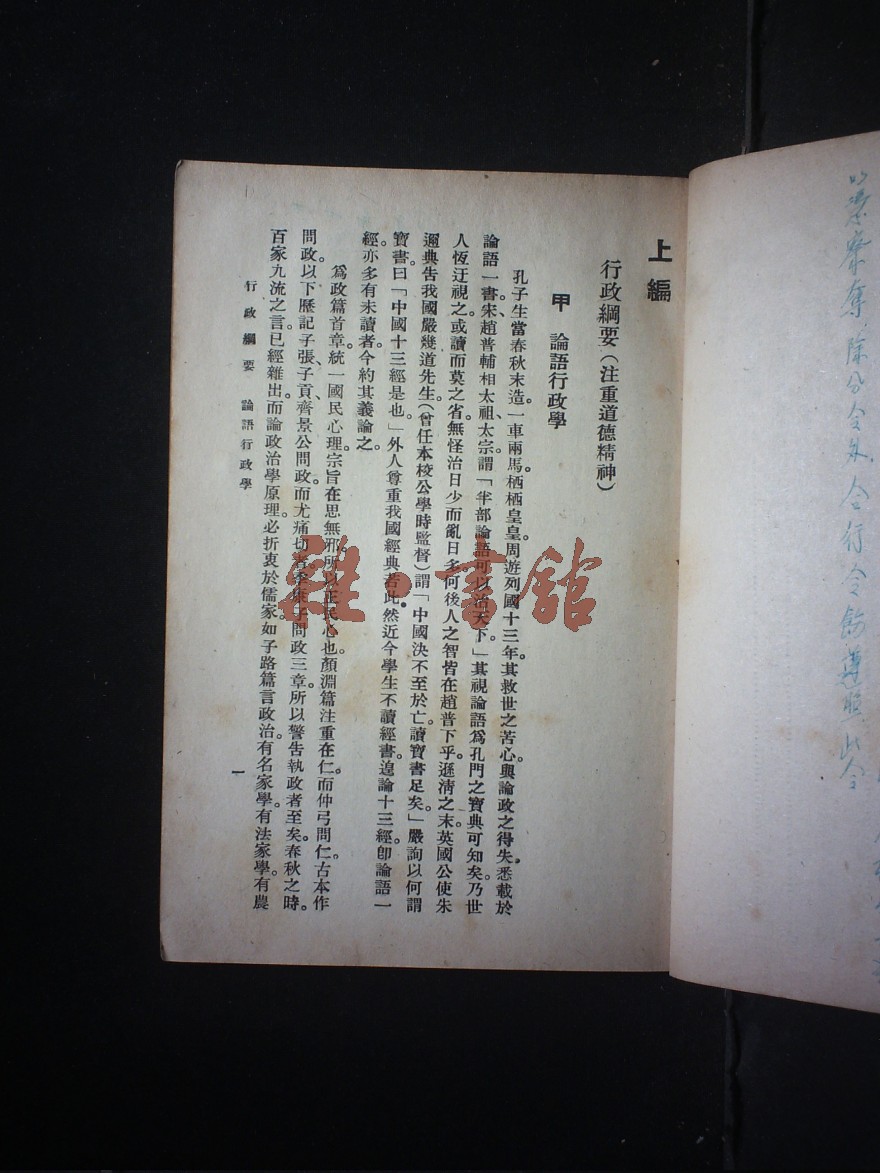 上編
行政綱要(注重道德精神)
甲 論語行政學
孔子生當春秋末造。一車兩馬。栖栖皇皇。周遊列國十三年。其救世之苦心。與論政之得失。悉載於
論語一書。宋趙普輔相太祖、太宗。謂「半部論語可以治天下。」其視論語爲孔門之寶典可知矣。乃世
人恆迂視之。或讀而莫之省。無怪治日少而亂日多。何後人之智皆在趙普下乎。遜清之末。英國公使朱
邇典告我國嚴幾道先生。(曾任本校公學時監督)謂「中國決不至於亡。讀寶書足矣。」嚴詢以何謂
寶書。曰「中國十三經是也。」外人尊重我國經典若此。然近今學生不讀經書。遑論十三經。卽論語一
經。亦多有未讀者。今約其義論之。
爲政篇首章。統一國民心理。宗旨在思無邪。所以正民心也。顏淵篇注重在仁。而仲弓問仁。古本作
問政。以下歷記子張、子貢、齊景公問政。而尤痛切者。季康子問政三章。所以警告執政者至矣。春秋之時。
百家九流之言。已經雜出。而論政治學原理。必折衷於儒家。如子路篇言政治。有名家學。有法家學。有農
行政綱要 論語行政學
一
雜·書館
除分令外合行令飭遵照此令